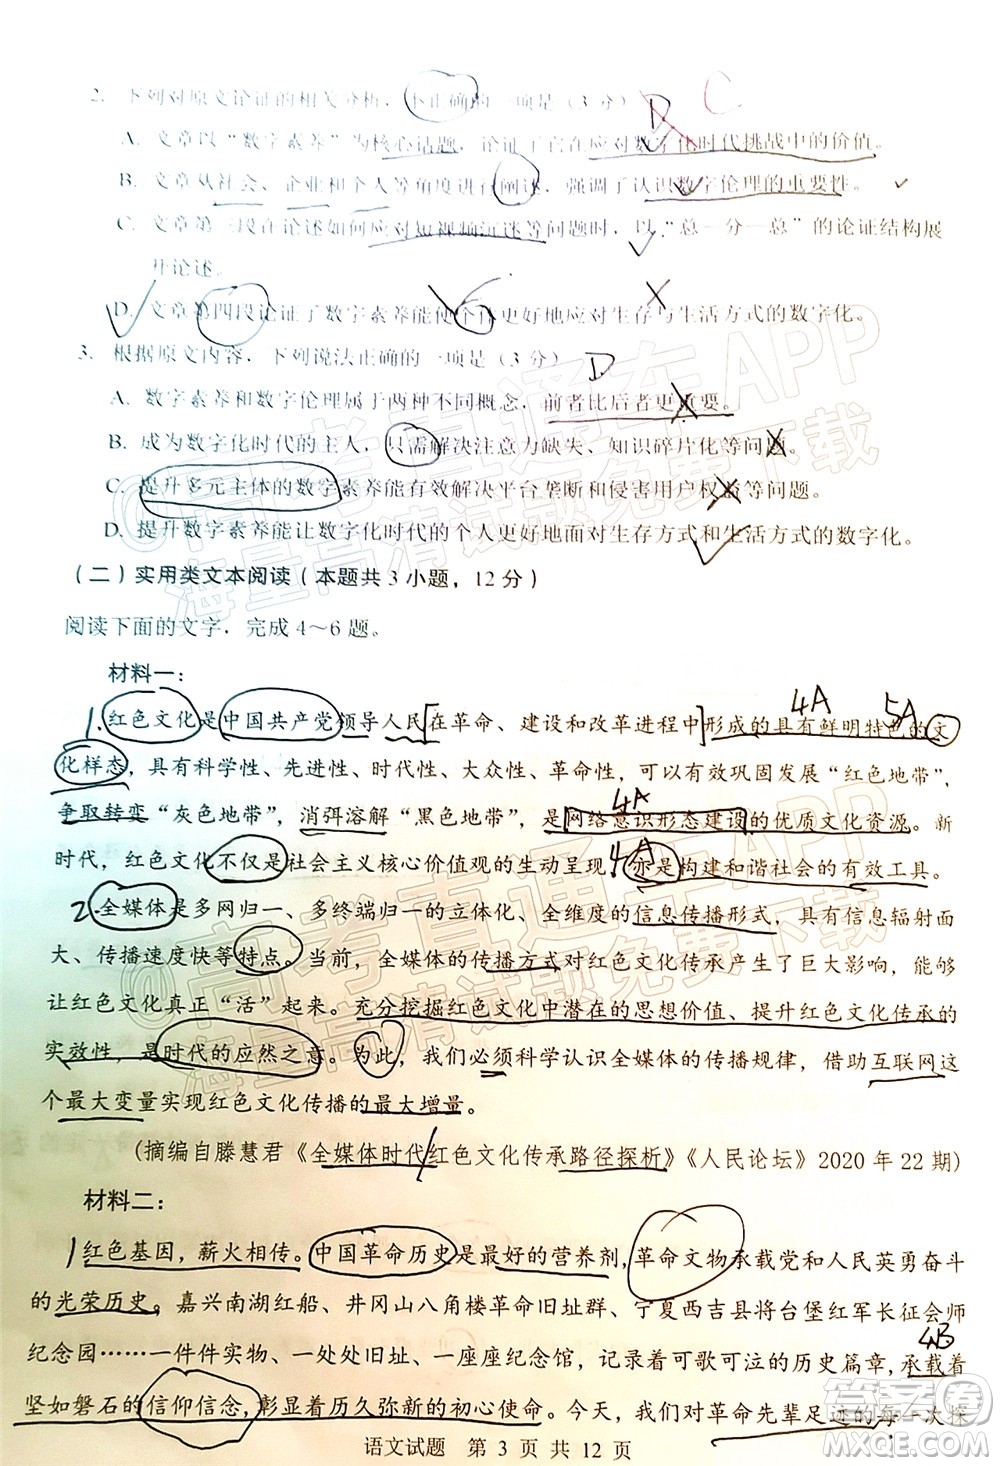 2. 下列对原文论证的相关分析，不正确的一项是（3分） D C
A. 文章以“数字素养”为核心话题，论证了它在应对数字化时代挑战中的价值。
B. 文章从社会、企业和个人等角度进行阐述，强调了认识数字伦理的重要性。
C. 文章第三段在论述如何应对短视频沉迷等问题时，以“总一分一总”的论证结构展
开论述。
D. 文章第四段论证了数字素养能使个体更好地应对生存与生活方式的数字化。
3. 根据原文内容，下列说法正确的一项是（3分） D
A. 数字素养和数字伦理属于两种不同概念，前者比后者更重要。
B. 成为数字化时代的主人，只需解决注意力缺失、知识碎片化等问题。
C. 提升多元主体的数字素养能有效解决平台垄断和侵害用户权益等问题。
D. 提升数字素养能让数字化时代的个人更好地面对生存方式和生活方式的数字化。
（二）实用类文本阅读（本题共3小题，12分）
阅读下面的文字，完成4～6题。
材料一：
4A 5A
1.红色文化是中国共产党领导人民在革命、建设和改革进程中形成的具有鲜明特色的文
化样态，具有科学性、先进性、时代性、大众性、革命性，可以有效巩固发展“红色地带”，
4A
争取转变“灰色地带”，消弭溶解“黑色地带”，是网络意识形态建设的优质文化资源。新
4A
时代，红色文化不仅是社会主义核心价值观的生动呈现，亦是构建和谐社会的有效工具。
2.全媒体是多网归一、多终端归一的立体化、全维度的信息传播形式，具有信息辐射面
大、传播速度快等特点。当前，全媒体的传播方式对红色文化传承产生了巨大影响，能够
让红色文化真正“活”起来。充分挖掘红色文化中潜在的思想价值、提升红色文化传承的
实效性，是时代的应然之意。为此，我们必须科学认识全媒体的传播规律，借助互联网这
个最大变量实现红色文化传播的最大增量。
(摘编自滕慧君《全媒体时代红色文化传承路径探析》《人民论坛》2020年22期)
材料二：
1红色基因，薪火相传。中国革命历史是最好的营养剂，革命文物承载党和人民英勇奋斗
的光荣历史。嘉兴南湖红船、井冈山八角楼革命旧址群、宁夏西吉县将台堡红军长征会师
4B
纪念园……一件件实物、一处处旧址、一座座纪念馆，记录着可歌可泣的历史篇章，承载着
坚如磐石的信仰信念，彰显着历久弥新的初心使命。今天，我们对革命先辈足迹的每一次探
语文试题 第3页共12页
@高考直通车APP
海量高清试题免费下载
@高考直通车APP
海量高清试题免费下载
答案卷
MXQE.COM